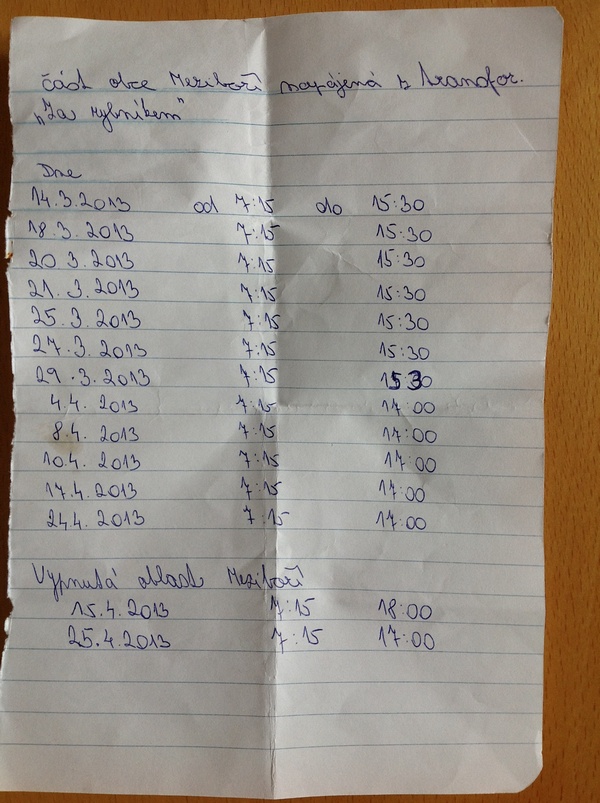 část obce Meziboří napájená z transfor.
"Za rybníkem"
Dne
14.3.2013 od 7:15 do 15:30
18.3.2013 7:15 15:30
20.3.2013 7:15 15:30
21.3.2013 7:15 15:30
25.3.2013 7:15 15:30
27.3.2013 7:15 15:30
29.3.2013 7:15 1530
4.4.2013 7:15 17:00
8.4.2013 7:15 17:00
10.4.2013 7:15 17:00
17.4.2013 7:15 17:00
24.4.2013 7:15 17:00
Vypnutá oblast Meziboří
15.4.2013 7:15 18:00
25.4.2013 7:15 17:00